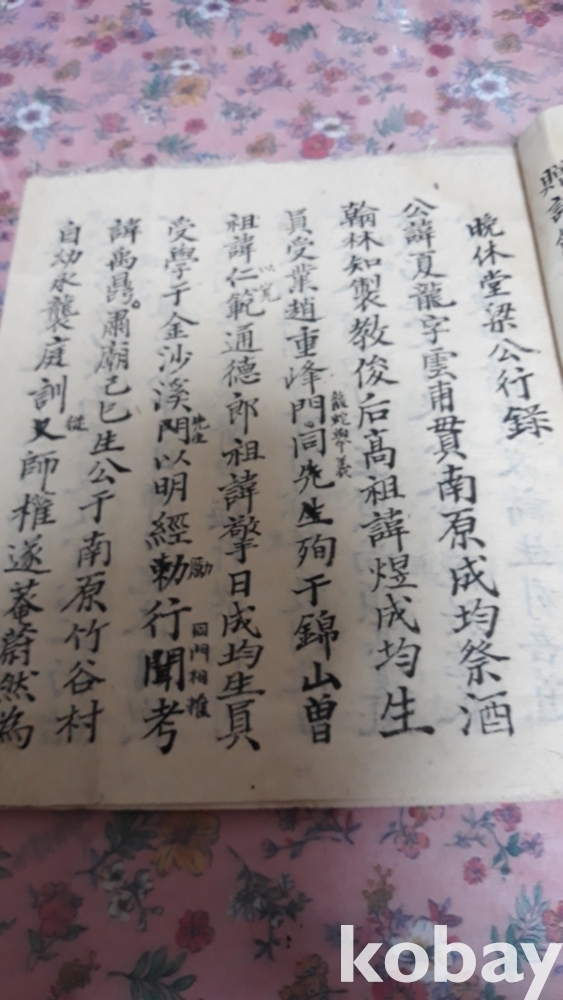 晩休堂梁公行錄
公諱夏龍字雲甫貫南原成均祭酒
翰林知製敎俊后高祖諱煜成均生
員受業趙重峰門同先生殉于錦山曾
龍蛇擧義
祖諱仁範通德郎祖諱擎日成均生員
以寬
受學于金沙溪門以明經勅行聞考
先生
勵
同門相推
諱禹㒷肅廟己巳生公于南原竹谷村
自幼永襲庭訓又師權遂菴蔚然為
從
贈
kobay